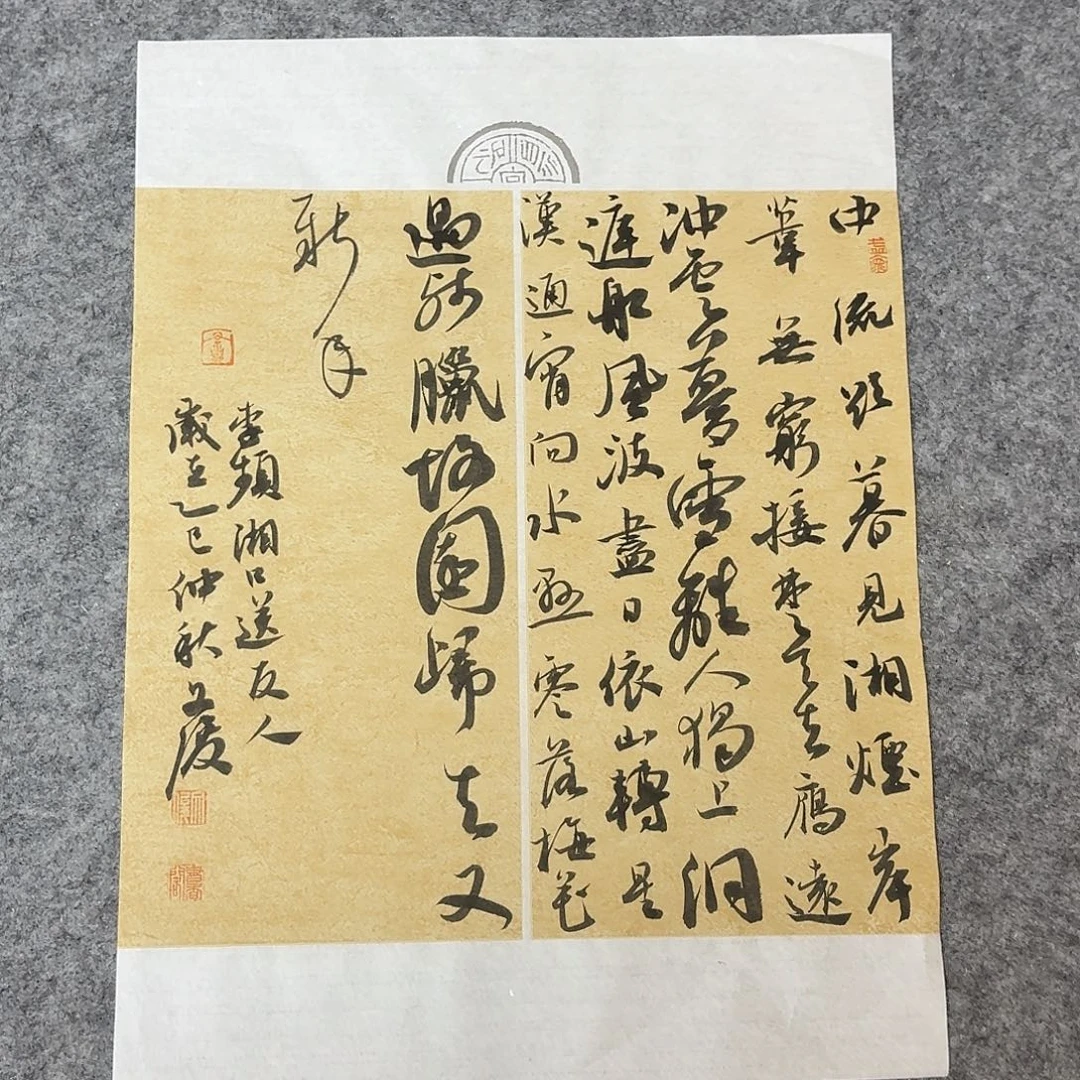 中流欲暮見湘煙岸
葦無窮接楚田去鴈遠
沖雲夢雪離人獨上洞
庭船風波盡日依山轉星
漢通宵向水懸零落梅花
過殘臘故園歸去又
新年
李頻湘口送友人
歲在乙巳仲秋